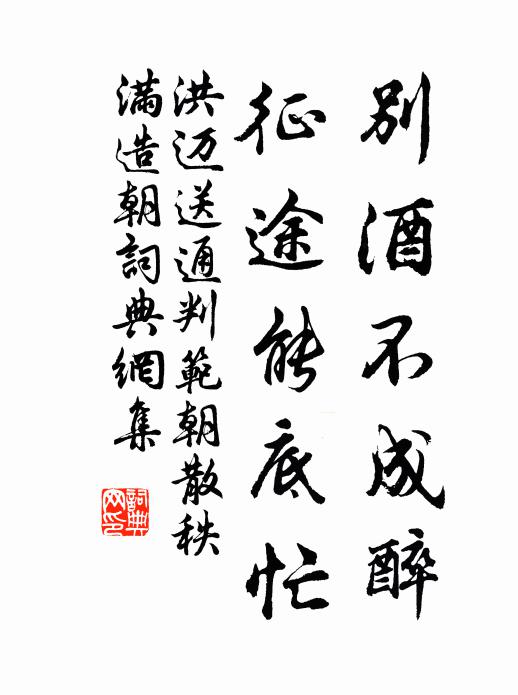 別酒不成醉
征途能底忙
洪迈送通判範朝散秩
滿造朝詞典網集
詞典
网印